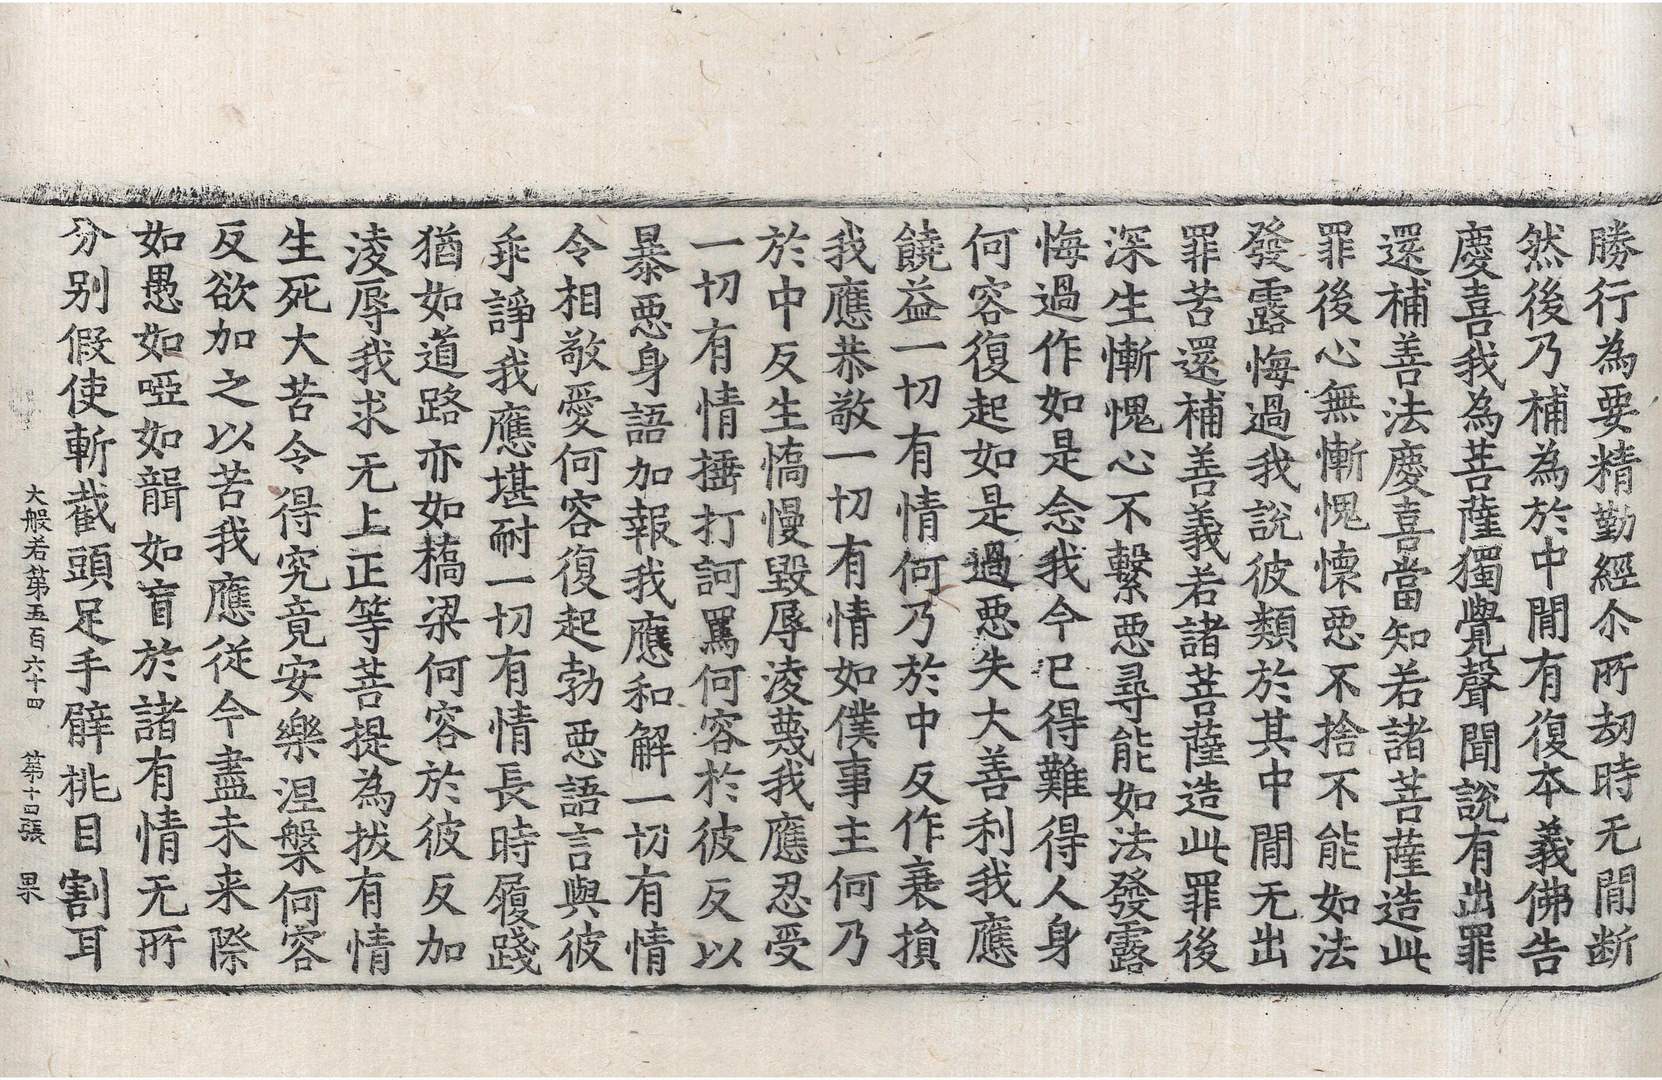 勝行為要精勤經尒所劫時无間断
然後乃補為於中間有復本義佛告
慶喜我為菩薩獨覺聲聞說有出罪
還補善法慶喜當知若諸菩薩造此
罪後心無慚愧懷惡不捨不能如法
發露悔過我說彼類於其中間无出
罪苦還補善義若諸菩薩造此罪後
深生慚愧心不繫惡尋能如法發露
悔過作如是念我今已得難得人身
何容復起如是過惡失大善利我應
饒益一切有情何乃於中反作衰損
我應恭敬一切有情如僕事主何乃
於中反生憍慢毀辱淩蔑我應忍受
一切有情捶打訶罵何容於彼反以
暴惡身語加報我應和解一切有情
令相敬愛何容復起勃惡語言與彼
乖諍我應堪耐一切有情長時履踐
猶如道路亦如橋梁何容於彼反加
淩辱我求无上正等菩提為拔有情
生死大苦令得究竟安樂涅槃何容
反欲加之以苦我應從今盡未来際
如愚如啞如聾如盲於諸有情无所
分别假使斬截頭足手臂挑目割耳
大般若第五百六十四　第十四張　果